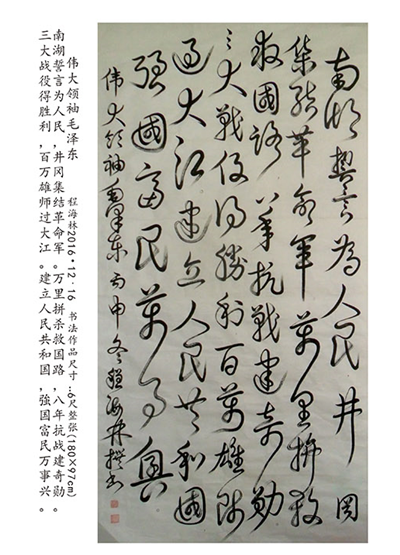 南湖誓言為人民井岡
集结革命軍萬里拚殺
救國路八年抗戰建奇勋
三大戰役得勝利百萬雄师
过大江建立人民共和國
强國富民萬事興
伟大领袖毛泽东 丙申冬程海林撰书
伟大领袖毛泽东 程海林2016·12·16 书法作品尺寸…6尺整张(180×97cm)
南湖誓言为人民，井冈集结革命军。万里拼杀救国路，八年抗战建奇勋。
三大战役得胜利，百万雄师过大江。建立人民共和国，強国富民万事兴。